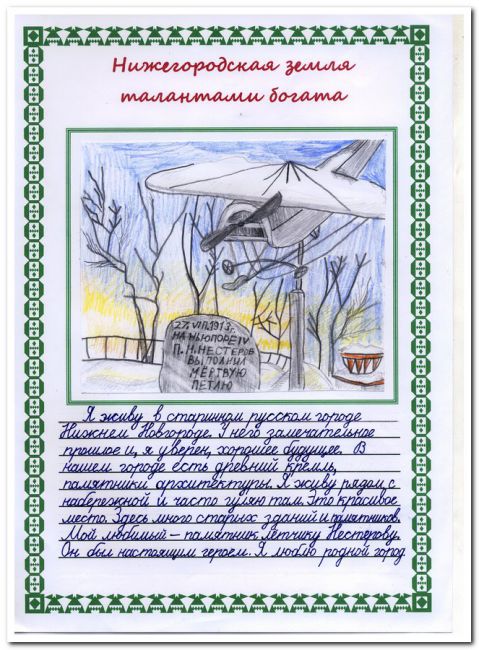 Нижегородская земля
талантами богата
27.VIII.1913г.
НА НЬЮПОРЕ IV
П.Н.НЕСТЕРОВ
ВЫПОЛНИЛ
МЁРТВУЮ
ПЕТЛЮ
Я живу в старинном русском городе
Нижнем Новгороде. У него замечательное
прошлое и, я уверен, хорошее будущее. В
нашем городе есть древний кремль,
памятники архитектуры. Я живу рядом с
набережной и часто гуляю там. Это красивое
место. Здесь много старых зданий и памятников.
Мой любимый – памятник летчику Нестерову.
Он был настоящим героем. Я люблю родной город